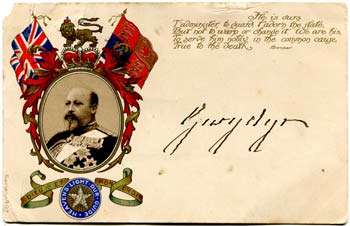 He is ours
T'administer, to guard, t'adorn the state,
But not to warp or change it. We are his,
To serve him nobly in the common cause,
True to the death.
Cowper
Gwydyr
HEAVEN'S LIGHT OUR GUIDE